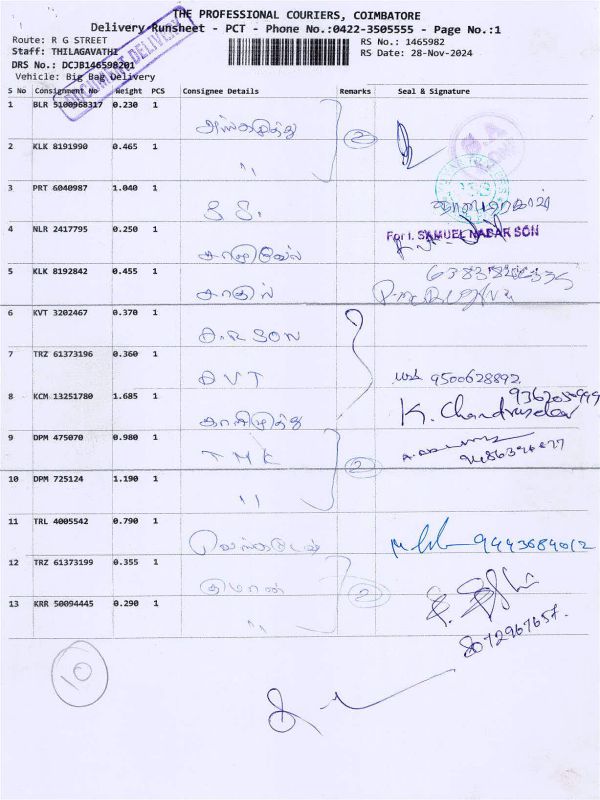 THE PROFESSIONAL COURIERS, COIMBATORE
Delivery Runsheet - PCT - Phone No.:0422-3505555 - Page No.:1
Route: R G STREET
RS No.: 1465982
Staff: THILAGAVATHI
RS Date: 28-Nov-2024
DRS No.: DCJB146598201
Vehicle: Big Bag Delivery
DOCUMENT DELIVERY
S No Consignment No Weight PCS Consignee Details Remarks Seal & Signature
1 BLR 5100968317 0.230 1
2
2 KLK 8191990 0.465 1 "
3 PRT 6040987 1.040 1 S.S.
4 NLR 2417795 0.250 1 சாமுவேல்
For I. SAMUEL NADAR SON
5 KLK 8192842 0.455 1
6 KVT 3202467 0.370 1 D.R SON
7 TRZ 61373196 0.360 1 DVT
9500628892
8 KCM 13251780 1.685 1 காளிமுத்து
K. Chandrasekar
9 DPM 475070 0.980 1 TMK
2
10 DPM 725124 1.190 1 "
11 TRL 4005542 0.790 1
9443684012
12 TRZ 61373199 0.355 1
2
13 KRR 50094445 0.290 1 "
8072967657.
10